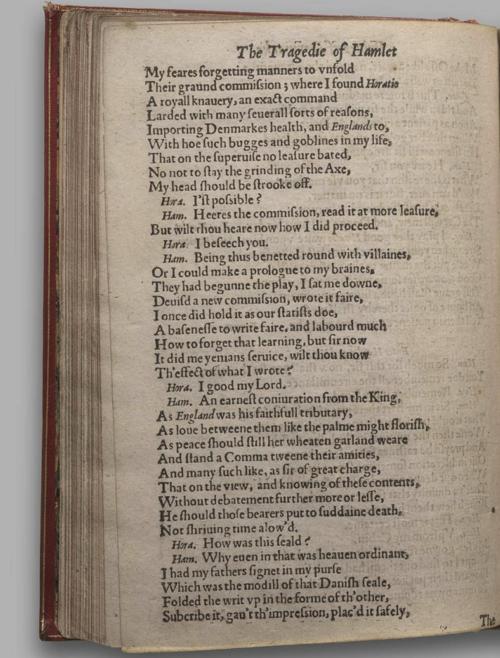 The Tragedie of Hamlet
My feares forgetting manners to vnfold
Their graund commiſsion ; where I found Horatio
A royall knauery, an exact command
Larded with many ſeuerall ſorts of reaſons,
Importing Denmarkes health, and Englands to,
With hoe ſuch bugges and goblines in my life,
That on the ſuperuiſe no leaſure bated,
No not to ſtay the grinding of the Axe,
My head ſhould be ſtrooke off.
Hora. I'ſt poſsible ?
Ham. Heeres the commiſsion, read it at more leaſure,
But wilt thou heare now how I did proceed.
Hora. I beſeech you.
Ham. Being thus benetted round with villaines,
Or I could make a prologue to my braines,
They had begunne the play, I ſat me downe,
Deuiſd a new commiſsion, wrote it faire,
I once did hold it as our ſtatiſts doe,
A baſeneſſe to write faire, and labourd much
How to forget that learning, but ſir now
It did me yemans ſeruice, wilt thou know
Th'effect of what I wrote ?
Hora. I good my Lord.
Ham. An earneſt coniuration from the King,
As England was his faithfull tributary,
As loue betweene them like the palme might floriſh,
As peace ſhould ſtill her wheaten garland weare
And ſtand a Comma tweene their amities,
And many ſuch like, as ſir of great charge,
That on the view, and knowing of theſe contents,
Without debatement further more or leſſe,
He ſhould thoſe bearers put to ſuddaine death,
Not ſhriuing time alow'd.
Hora. How was this ſeald ?
Ham. Why euen in that was heauen ordinant,
I had my fathers ſignet in my purſe
Which was the modill of that Daniſh ſeale,
Folded the writ vp in the forme of th'other,
Subcribe it, gau't th'impreſsion, plac'd it ſafely,
The